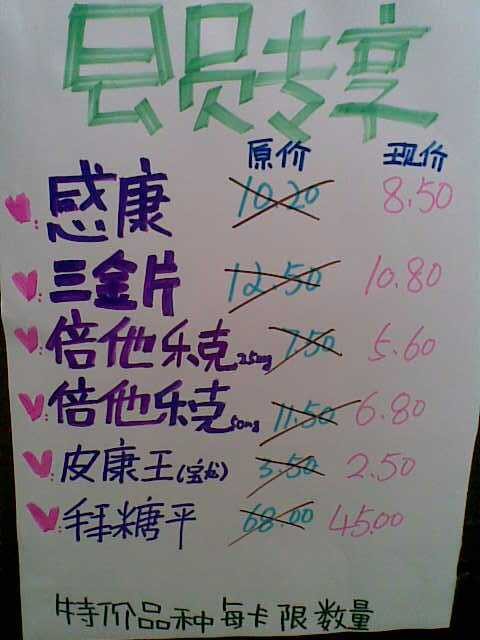 会员专享
原价 现价
感康 10.20 8.50
三金片 12.50 10.80
倍他乐克25mg 7.50 5.60
倍他乐克50mg 11.50 6.80
皮康王(宝龙) 3.50 2.50
拜糖平 68.00 45.00
特价品种每卡限数量